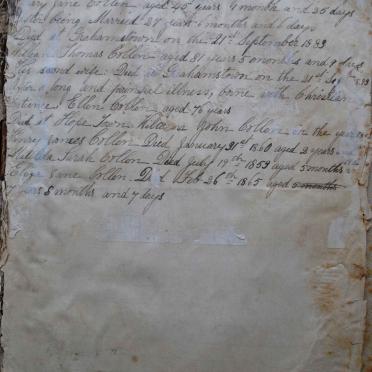 Jane Collen aged 45 years 4 month and 26 days
After being Married 27 years 4 months and days
Died at Grahamstown on the 21st September 1893
William Thomas Collen aged 81 years 5 months and 9 days
His second wife. Died at Grahamstown on the 21st Sep 1893
After a long and painful illness, borne with Christian
Patience. Ellen Collen aged 76 years
Died at Hope Town William John Collen in the year
Henry James Collen Died January 31st 1860 aged 2 years and
Matilda Sarah Collen. Died July 19th 1859 aged 5 months
Eliza Jane Collen. Died Feb 26th 1865 aged 5 months
7 years 8 months and 7 days